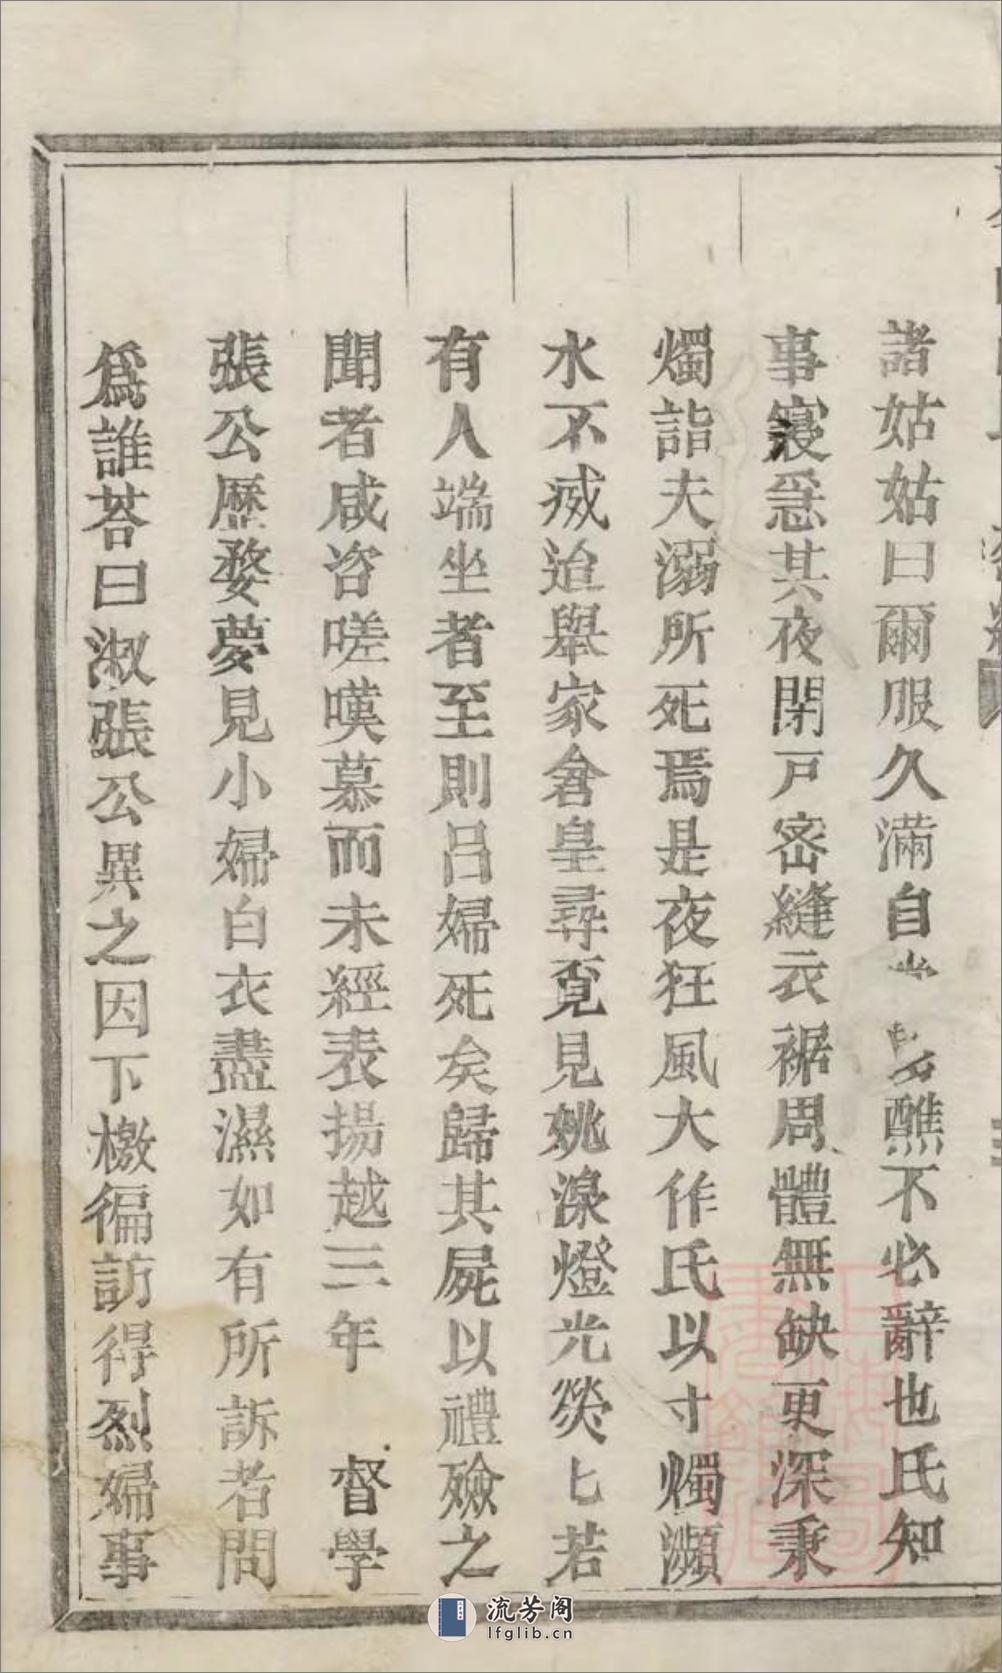 諸姑姑曰爾服久滿自 醮不必辭也氏知
事寢忌其夜閉戸密縫衣裾周體無缺更深秉
燭詣夫溺所死焉是夜狂風大作氏以寸燭瀕
水不威迨舉家倉皇尋覓見姚澡燈光熒匕若
有人端坐者至則呂婦死矣歸其屍以禮殮之
聞者咸咨嗟嘆慕而未經表揚越三年 督學
張公歷婺夢見小婦白衣盡濕如有所訴者問
為誰荅曰淑張公異之因下檄徧訪得烈婦事
流芳阁
lfglib.cn